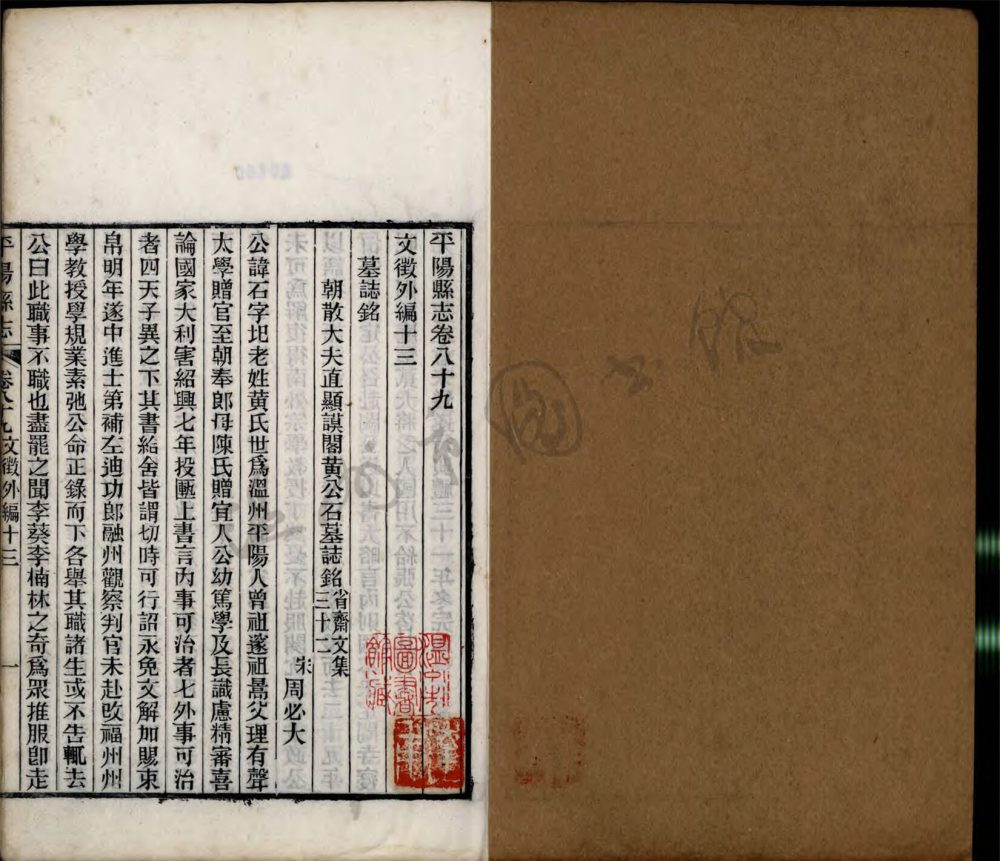 平陽縣志卷八十九
文徵外編十三
墓誌銘
朝散大夫直顯謨閣黄公石墓誌銘省齋文集三十二 宋周必大
公諱石字圯老姓黄氏世爲溫州平陽人曾祖邃祖暠父理有聲
太學贈官至朝奉郎母陳氏贈宜人公幼篤學及長識慮精審喜
論國家大利害紹興七年投匭上書言内事可治者七外事可治
者四天子異之下其書給舍皆謂切時可行詔永免文解加賜束
帛明年遂中進士第補左迪功郎融州觀察判官未赴改福州州
學教授學規業素弛公命正錄而下各舉其職諸生或不告輒去
公曰此職事不職也盡罷之聞李葵李楠林之奇爲眾推服卽走
平陽縣志 卷八十九文徵外編十三 一